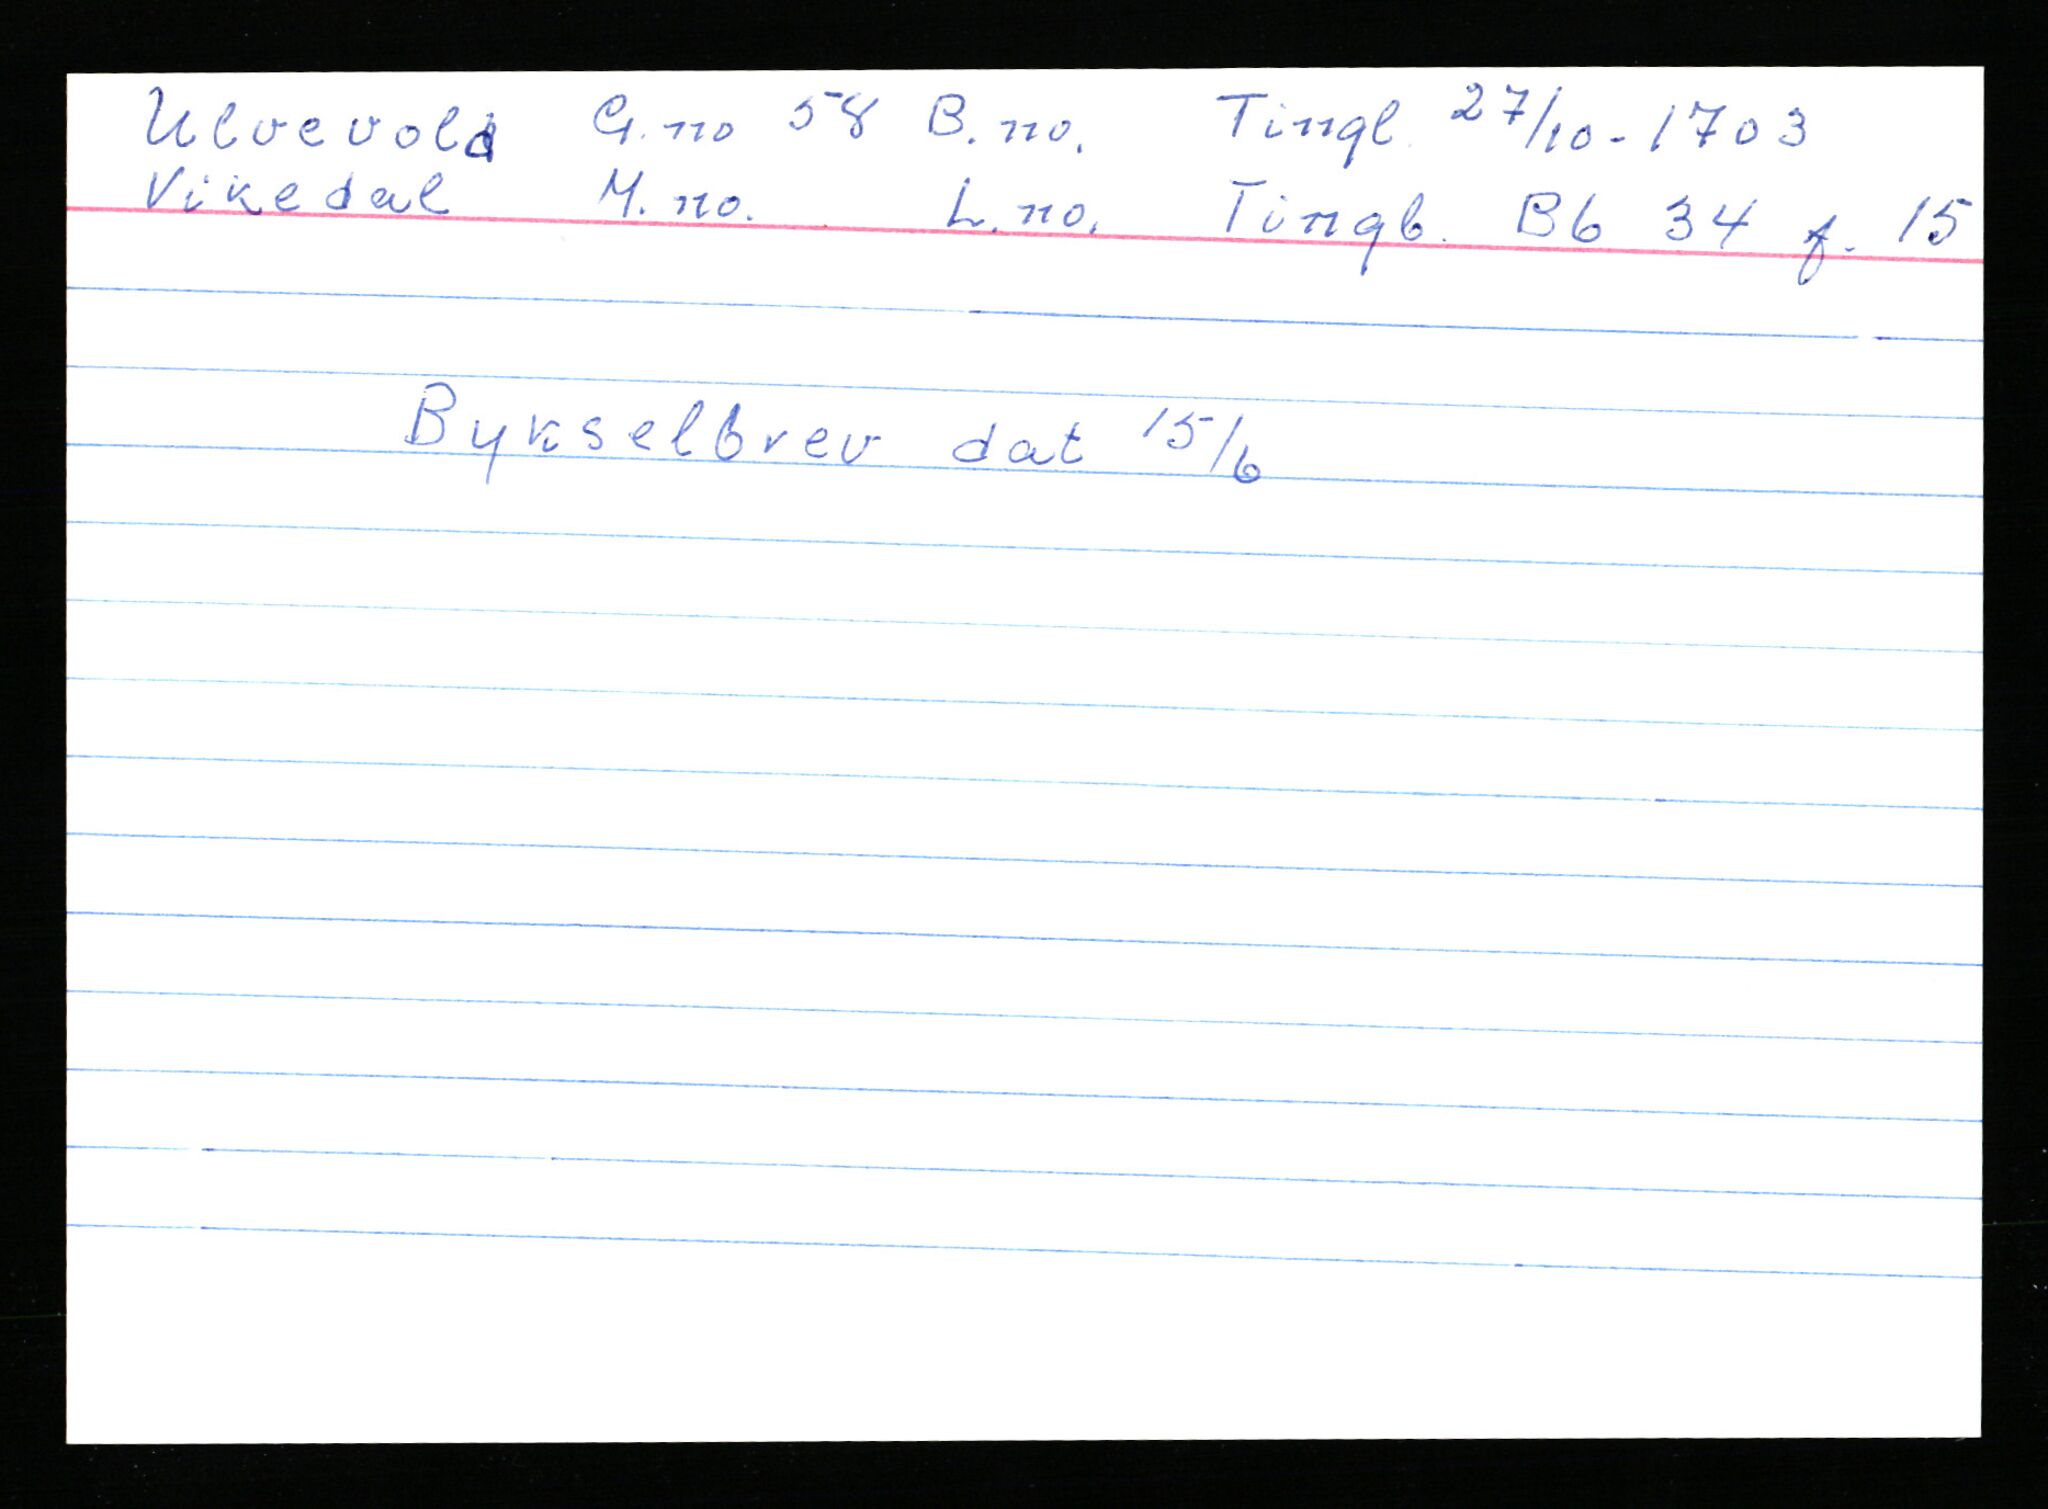 Ulvevold G.no 58 B.no. Tingl. 27/10-1703
Vikedal M.no. L.no. Tingb. Bb 34 f. 15
Bykselbrev dat 15/6